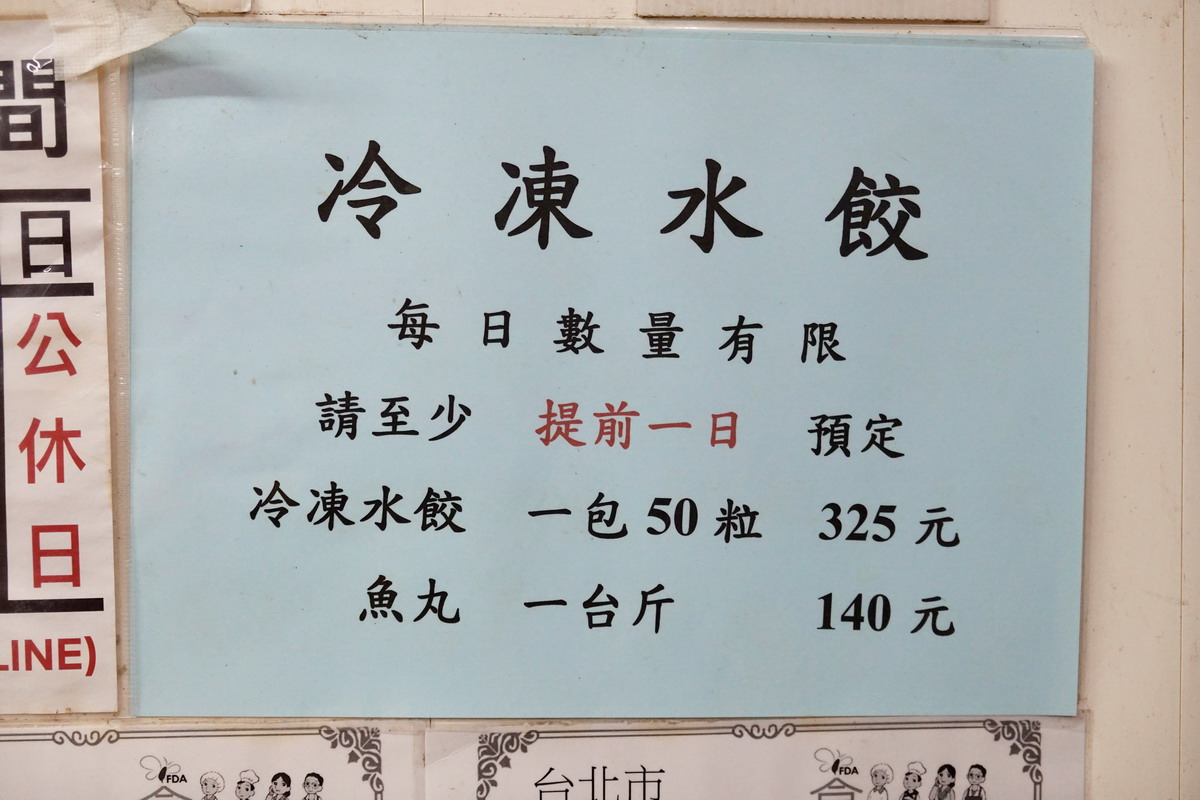 冷凍水餃
每日數量有限
請至少 提前一日 預定
冷凍水餃 一包50粒 325元
魚丸 一台斤 140元
間
日
公
休
日
LINE)
FDA
台北市
FDA